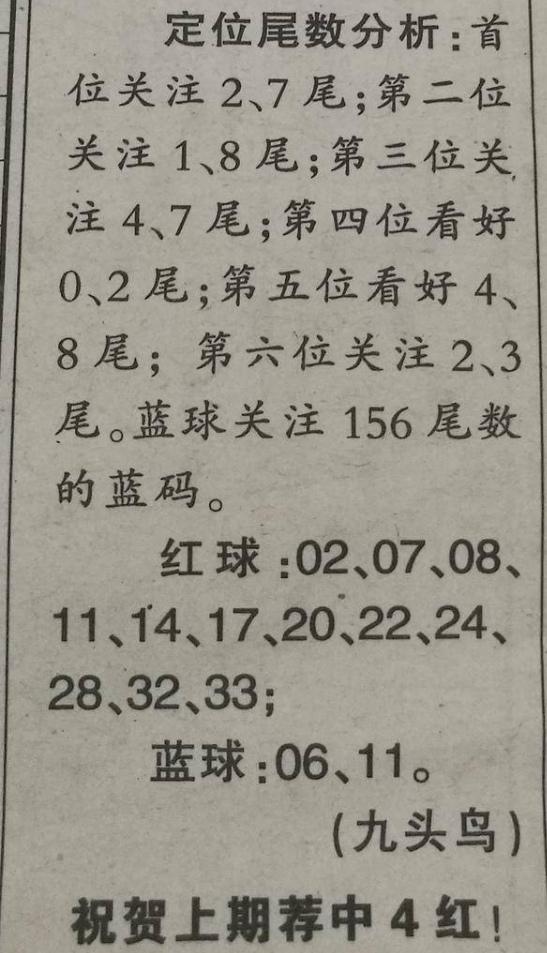 定位尾数分析:首
位关注 2、7 尾;第二位
关注 1、8 尾;第三位关
注 4、7 尾;第四位看好
0、2 尾;第五位看好 4、
8 尾; 第六位关注 2、3
尾。蓝球关注 156 尾数
的蓝码。
红球:02、07、08、
11、14、17、20、22、24、
28、32、33;
蓝球:06、11。
(九头鸟)
祝贺上期荐中 4 红!